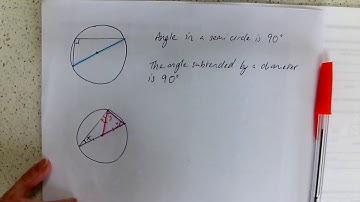 Angle in a semi circle is 90°
The angle subtended by a diameter
is 90°